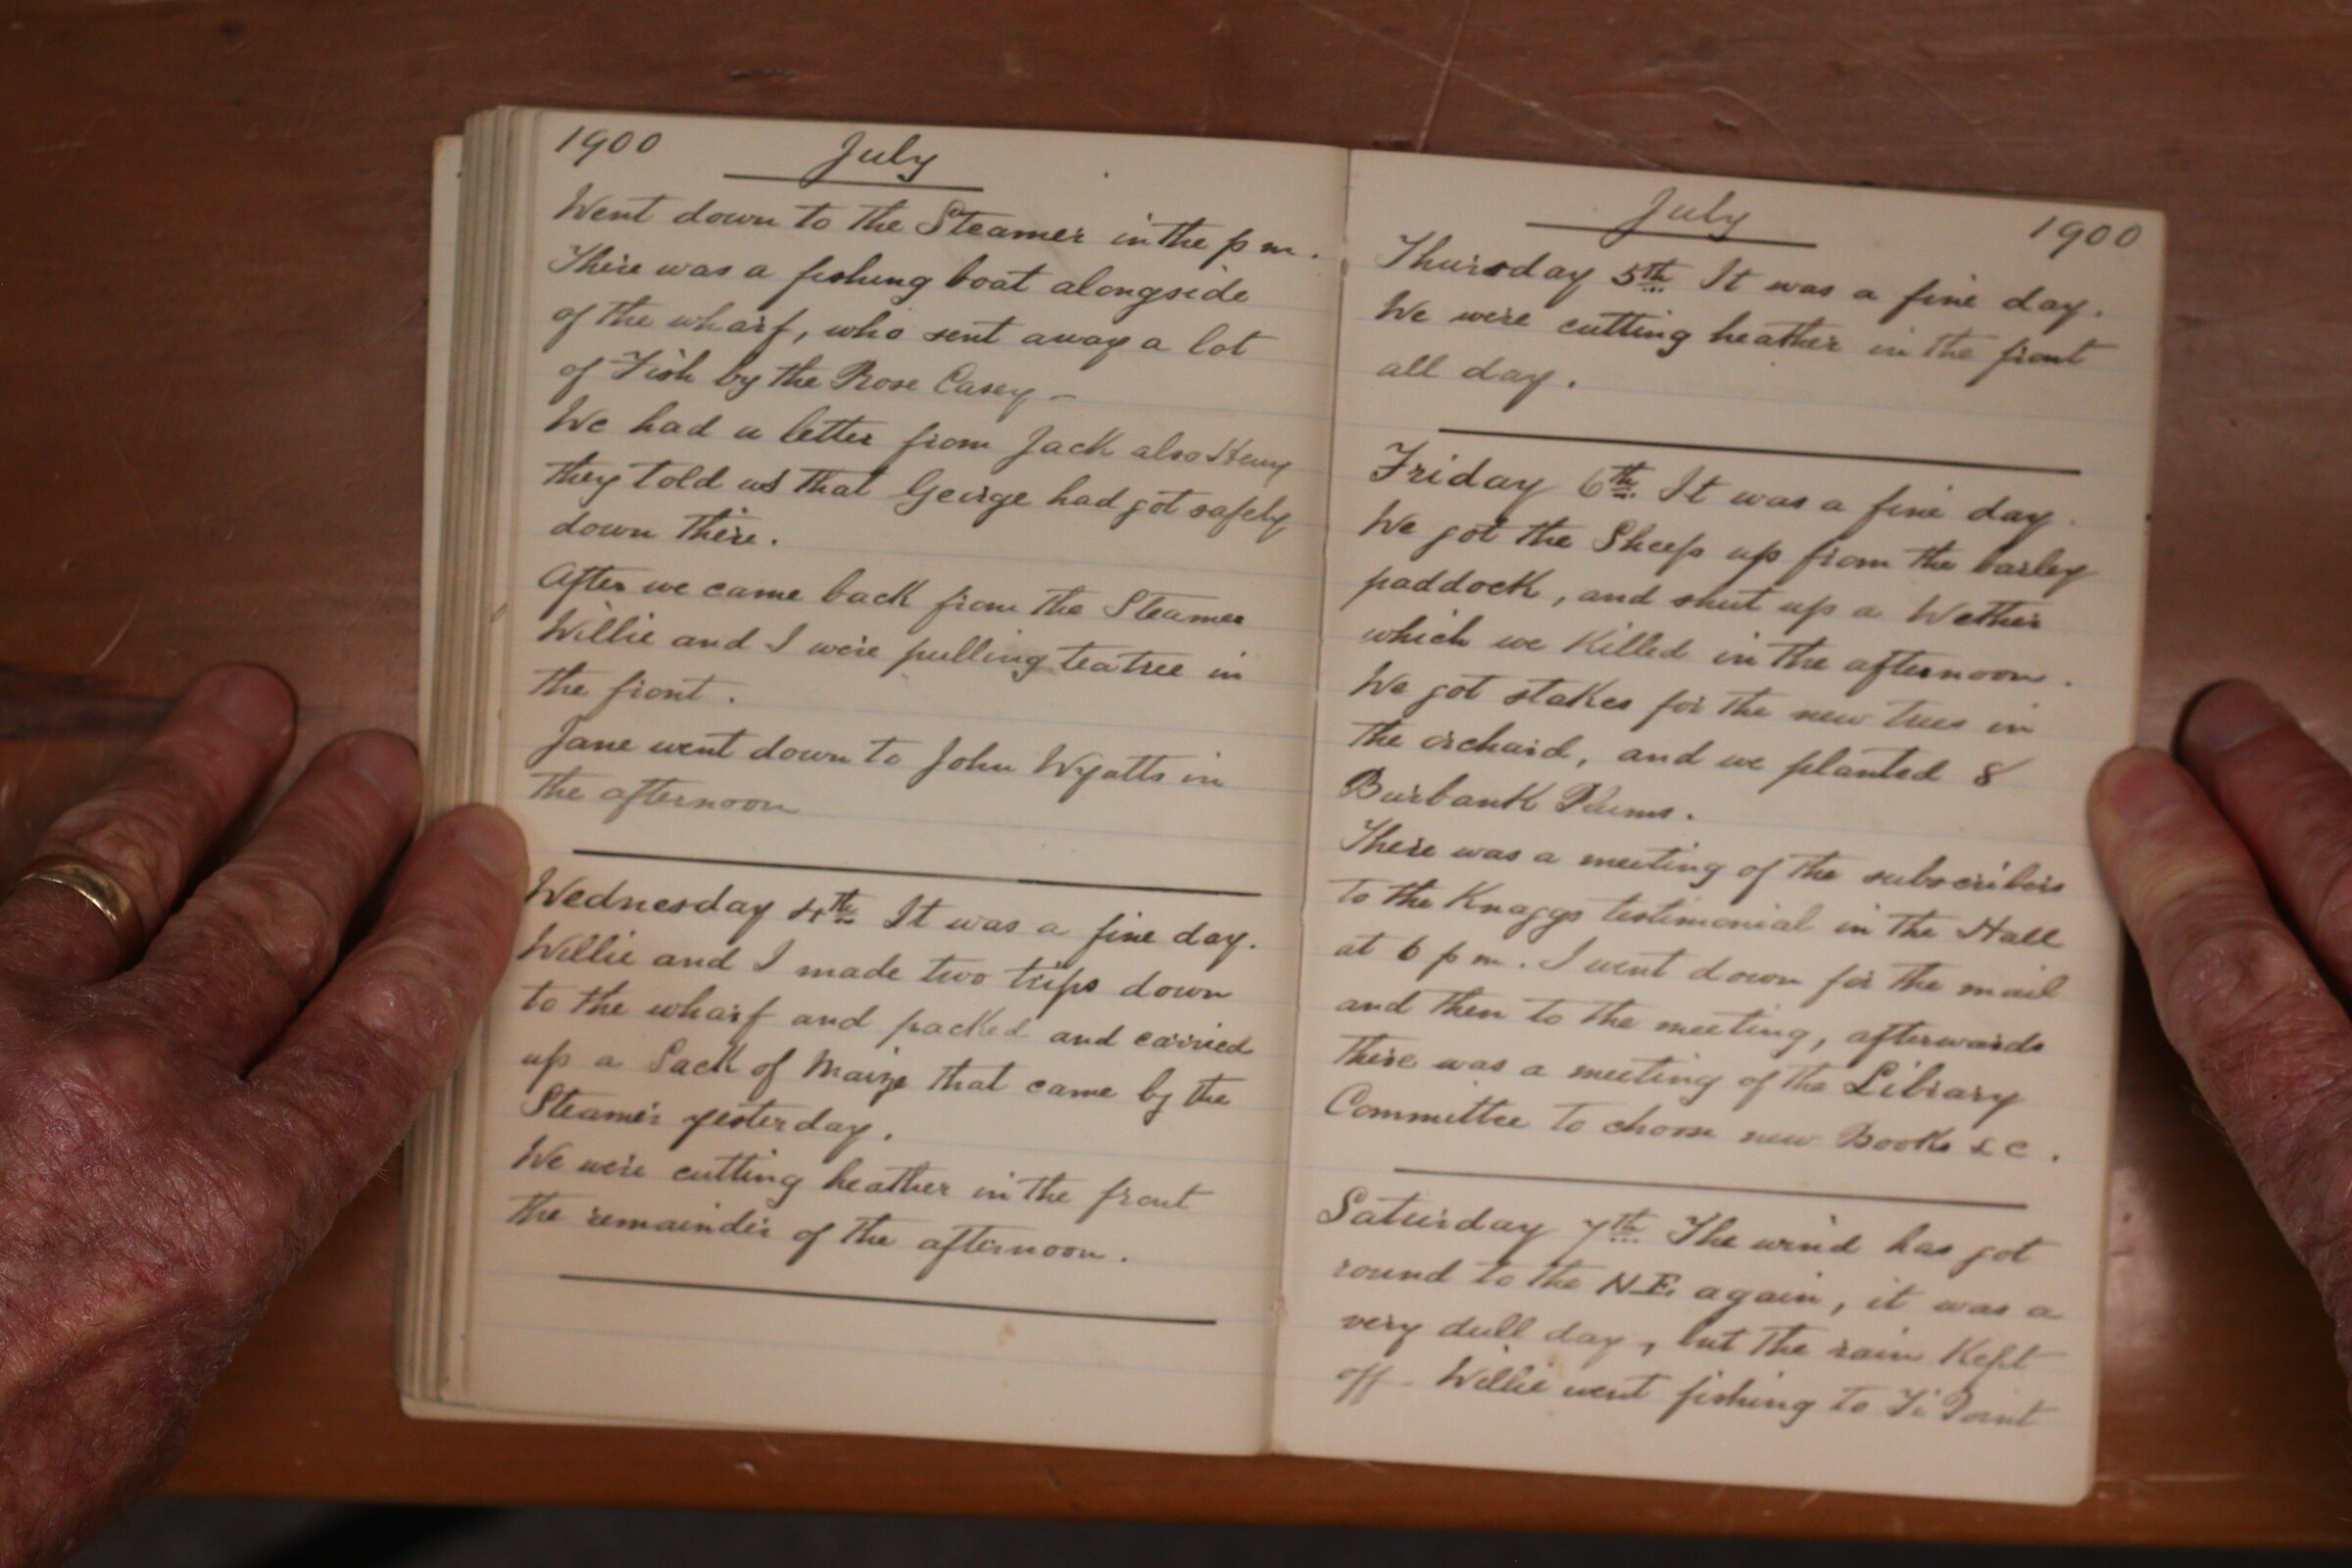 1900 July
Went down to the Steamer in the p m.
There was a fishing boat alongside
of the wharf, who sent away a lot
of Fish by the Rose Casey -
We had a letter from Jack also Henry
they told us that George had got safely
down there.
After we came back from the Steamer
Willie and I were pulling teatree in
the front.
Jane went down to John Wyatts in
the afternoon
Wednesday 4th It was a fine day.
Willie and I made two trips down
to the wharf and packed and carried
up a Sack of Maize that came by the
Steamer yesterday.
We were cutting heather in the front
the remainder of the afternoon.
July 1900
Thursday 5th It was a fine day.
We were cutting heather in the front
all day.
Friday 6th It was a fine day.
We got the Sheep up from the barley
paddock, and shut up a Wether
which we Killed in the afternoon.
We got stakes for the new trees in
the orchard, and we planted 8
Burbank Plums.
There was a meeting of the subscribers
to the Knaggs testimonial in the Hall
at 6 p m. I went down for the mail
and then to the meeting, afterwards
there was a meeting of the Library
Committee to choose new Books & c.
Saturday 7th The wind has got
round to the N.E. again, it was a
very dull day, but the rain Kept
off - Willie went fishing to Ti Point